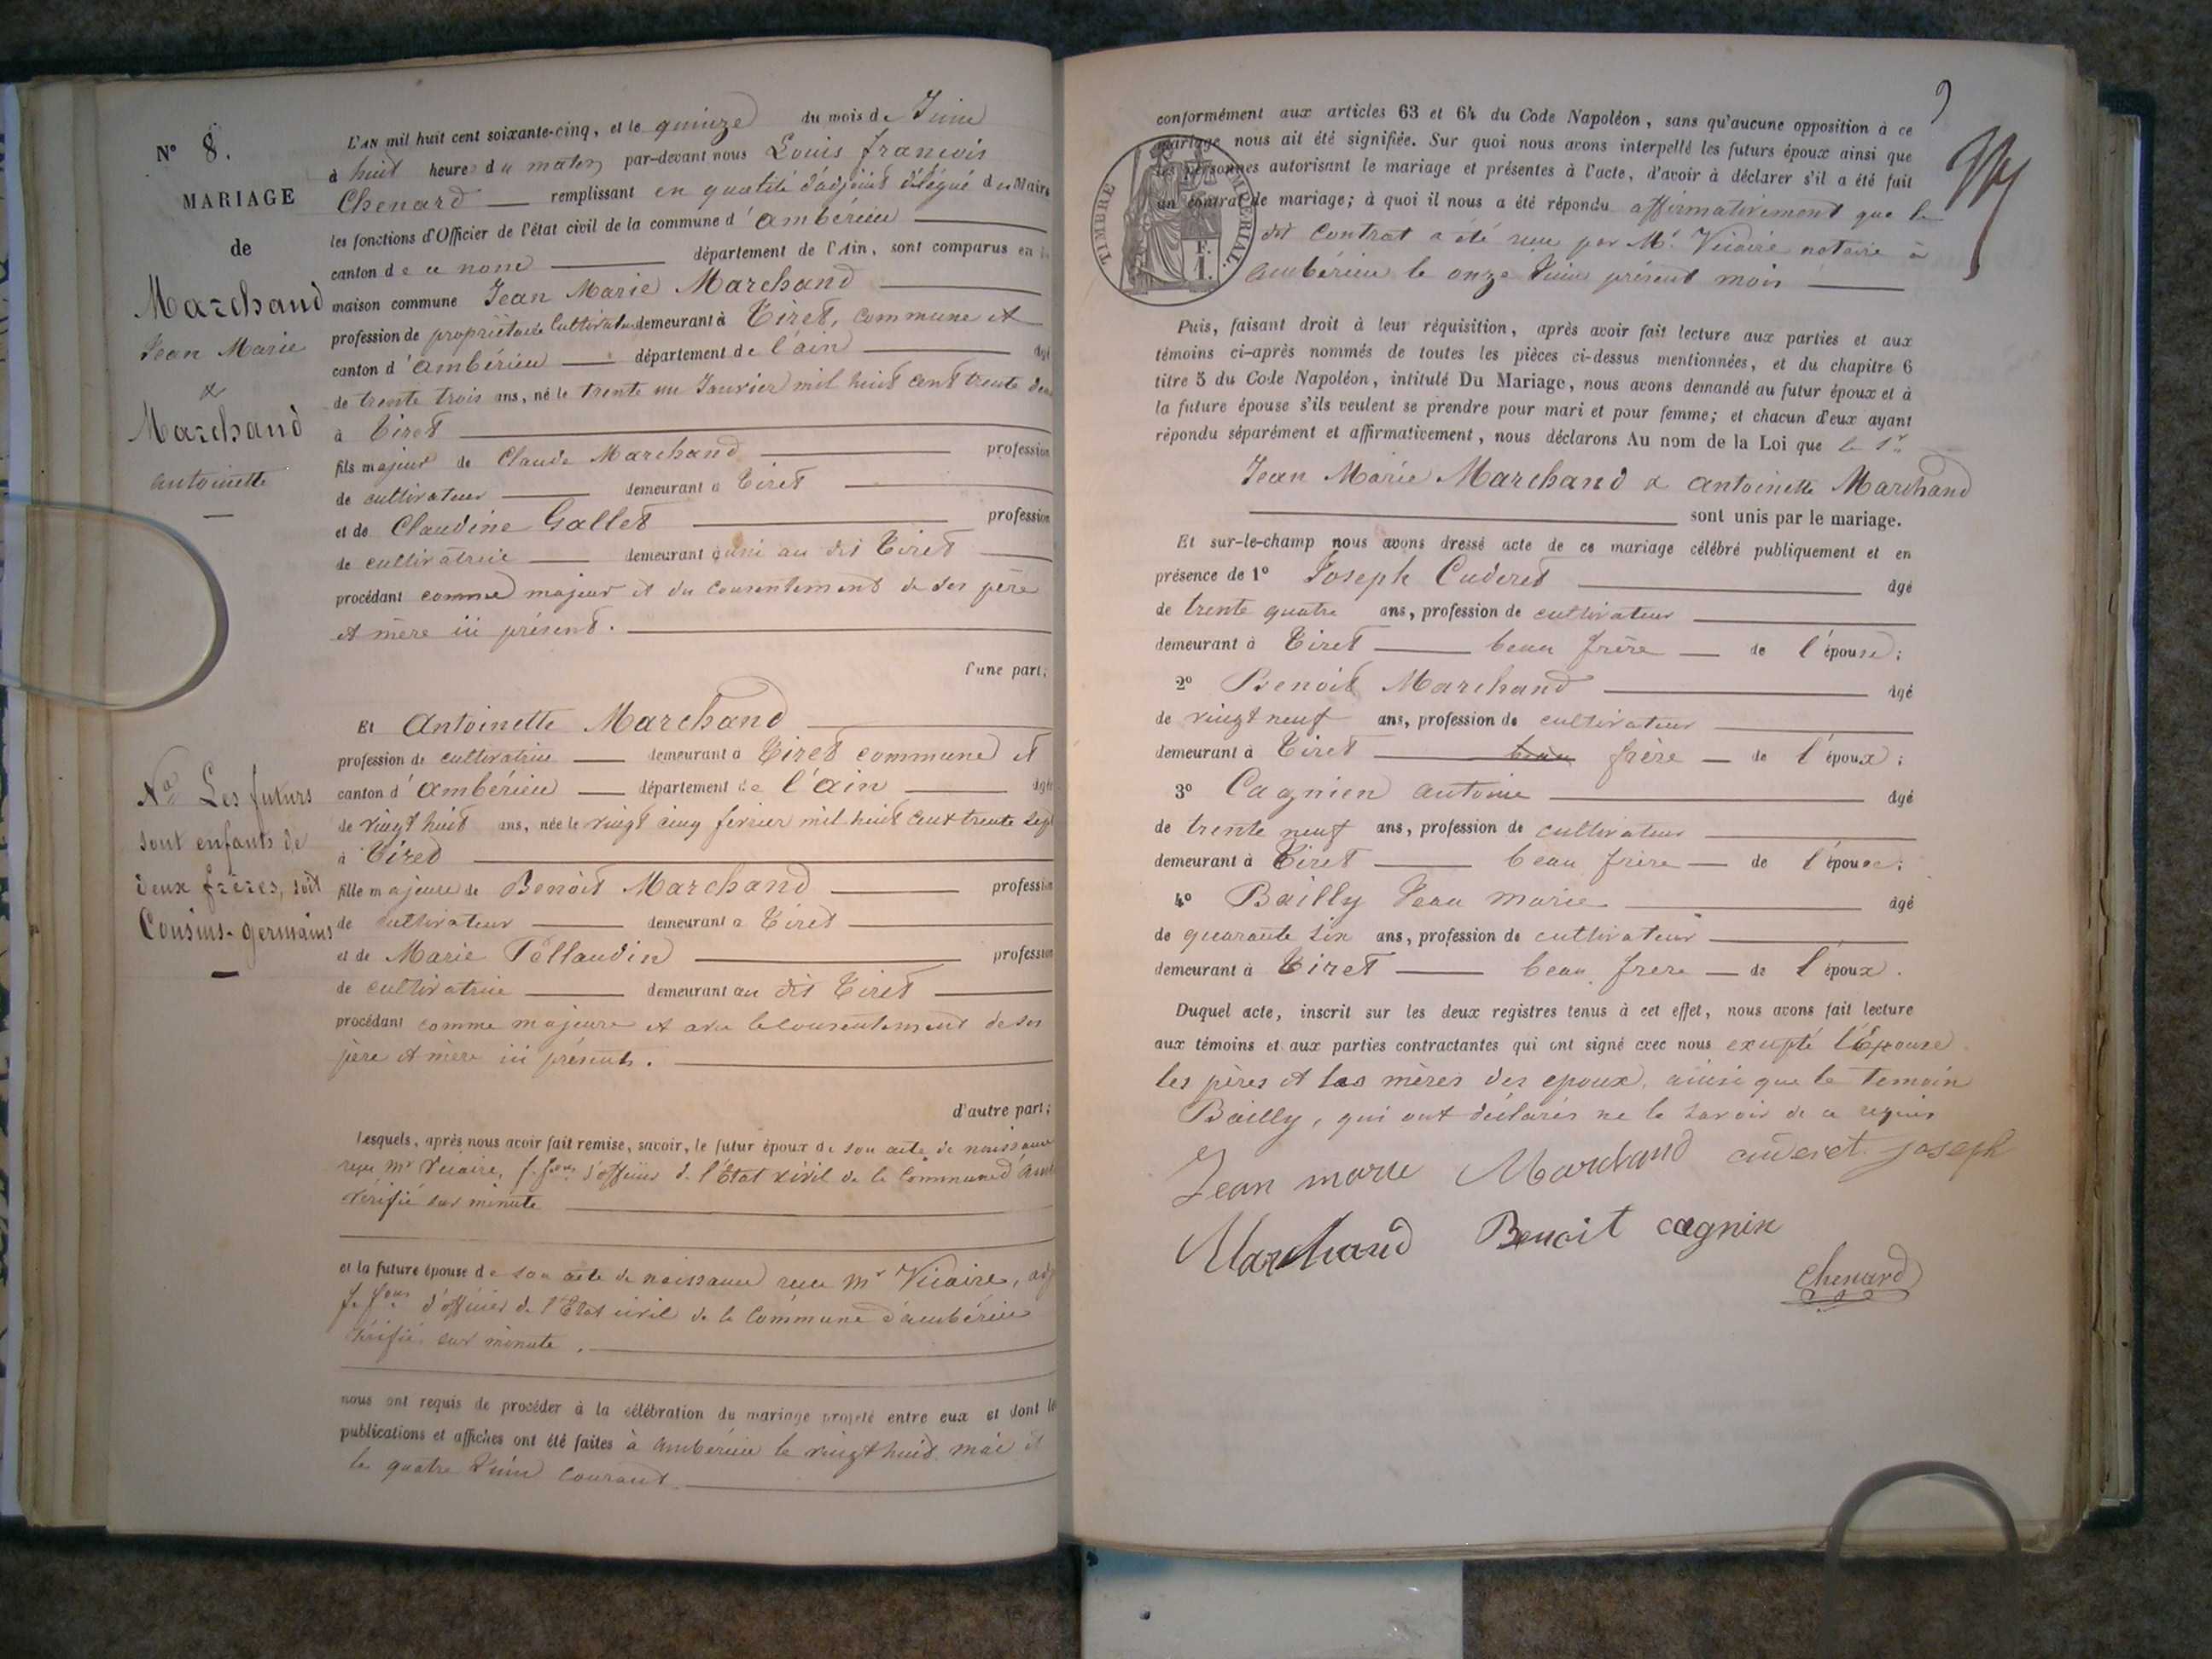 N° 8.
MARIAGE
de
Marchand
Jean Marie
&
Marchand
antoinette
Na Les futurs
sont enfants de
deux frères, soit
Cousins-germains
L'AN mil huit cent soixante-cinq, et le quinze du mois de Juin
à huit heures du matin par-devant nous Louis françois
Chenard remplissant en qualité d'adjoint délégué du Maire
les fonctions d'Officier de l'état civil de la commune d'ambérieu
canton de ce nom département de l'Ain, sont comparus en la
maison commune Jean Marie Marchand
profession de propriétaire Cultivateur demeurant à Tiret, commune et
canton d'ambérieu département de l'ain âgé
de trente trois ans, né le trente un Janvier mil huit cent trente deux
à Tiret
fils majeur de Claude Marchand profession
de cultivateur demeurant à Tiret
et de Claudine Gallet profession
de cultivatrice demeurant aussi au dit Tiret
procédant comme majeur et du consentement de ses père
et mère ici présent.
l'une part;
Et Antoinette Marchand
profession de cultivatrice demeurant à Tiret commune et
canton d'ambérieu département de l'ain âgée
de vingt huit ans, née le vingt cinq fevrier mil huit cent trente sept
à Tiret
fille majeure de Benoit Marchand profession
de cultivateur demeurant à Tiret
et de Marie Tellaudin profession
de cultivatrice demeurant au dit Tiret
procédant comme majeure et avec le consentement de ses
père et mère ici présents.
d'autre part;
Lesquels, après nous avoir fait remise, savoir, le futur époux de son acte de naissance
reçu Mr Vicaire, f. fons d'officier de l'État civil de la Commune d'Amb
vérifié sur minute
et la future épouse de son acte de naissance reçu Mr Vicaire, adj
f. fons d'officier de l'Etat civil de la Commune d'ambérieu
vérifié sur minute.
nous ont requis de procéder à la célébration du mariage projeté entre eux et dont les
publications et affiches ont été faites à ambérieu le vingt huit mai et
le quatre Juin courant
conformément aux articles 63 et 64 du Code Napoléon, sans qu'aucune opposition à ce
mariage nous ait été signifiée. Sur quoi nous avons interpellé les futurs époux ainsi que
les personnes autorisant le mariage et présentes à l'acte, d'avoir à déclarer s'il a été fait
un contrat de mariage; à quoi il nous a été répondu affirmativement que le
dit Contrat a été reçu par Me Vicaire notaire à
ambérieu le onze Juin présent mois
TIMBRE IMPÉRIAL.
F.
1.
Puis, faisant droit à leur réquisition, après avoir fait lecture aux parties et aux
témoins ci-après nommés de toutes les pièces ci-dessus mentionnées, et du chapitre 6
titre 5 du Code Napoléon, intitulé Du Mariage, nous avons demandé au futur époux et à
la future épouse s'ils veulent se prendre pour mari et pour femme; et chacun d'eux ayant
répondu séparément et affirmativement, nous déclarons Au nom de la Loi que le Sr
Jean Marie Marchand & antoinette Marchand
sont unis par le mariage.
Et sur-le-champ nous avons dressé acte de ce mariage célébré publiquement et en
présence de 1° Joseph Cuderet âgé
de trente quatre ans, profession de cultivateur
demeurant à Tiret beau frère de l'épouse;
2° Benoit Marchand âgé
de vingt neuf ans, profession de cultivateur
demeurant à Tiret beau frère de l'époux;
3° Cagnien antoine âgé
de trente neuf ans, profession de cultivateur
demeurant à Tiret beau frère de l'épouse;
4° Bailly Jean marie âgé
de quarante six ans, profession de cultivateur
demeurant à Tiret beau frere de l'époux.
Duquel acte, inscrit sur les deux registres tenus à cet effet, nous avons fait lecture
aux témoins et aux parties contractantes qui ont signé avec nous excepté l'Epouse
les pères et les mères des epoux, ainsi que le temoin
Bailly, qui ont déclarés ne le savoir de ce requis
Jean marie Marchand cuderet joseph
Marchand Benoit cagnin
Chenard